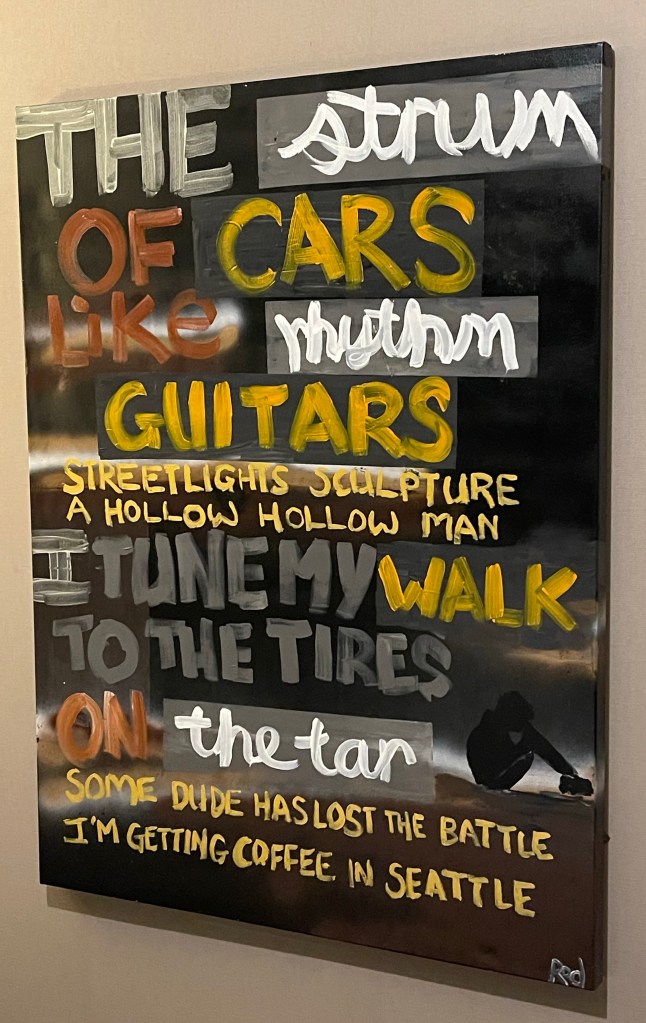 THE strum
OF CARS
Like rhythm
GUITARS
STREETLIGHTS SCULPTURE
A HOLLOW HOLLOW MAN
I TUNE MY WALK
TO THE TIRES
ON the tar
SOME DUDE HAS LOST THE BATTLE
I'M GETTING COFFEE IN SEATTLE
Red